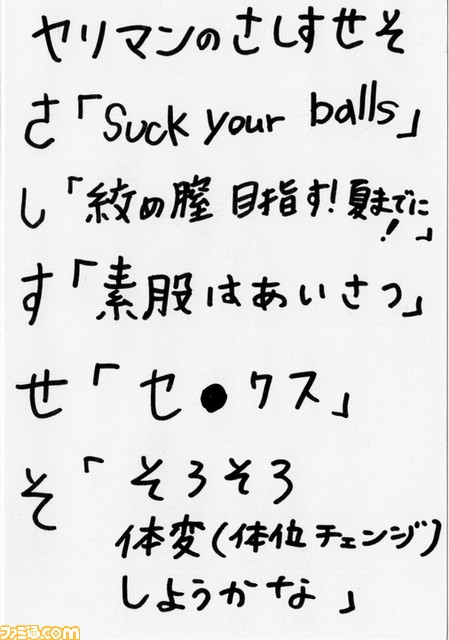 ヤリマンのさしすせそ
さ「Suck your balls」
し「絞め膣 目指す!夏までに!」
す「素股はあいさつ」
せ「セ●クス」
そ「そろそろ
体変(体位チェンジ)
しようかな」
ファミ通.com